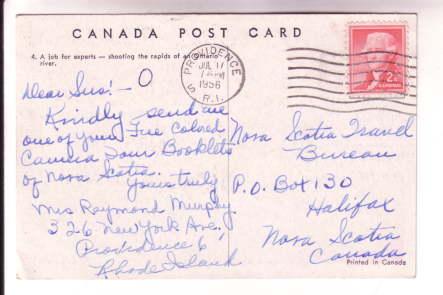 CANADA POST CARD
4. A job for experts — shooting the rapids of an Ontario
river.
PROVIDENCE
JUL 17
1956
R.I.
2¢
Dear Sirs:—
Kindly send me
one of your Free Colored
Camera Tour Booklets
of Nova Scotia.
Yours truly
Mrs Raymond Murphy
326 New York Ave.
Providence 6,
Rhode Island
Nova Scotia Travel
Bureau
P.O. Box 130
Halifax
Nova Scotia
Canada
Printed in Canada